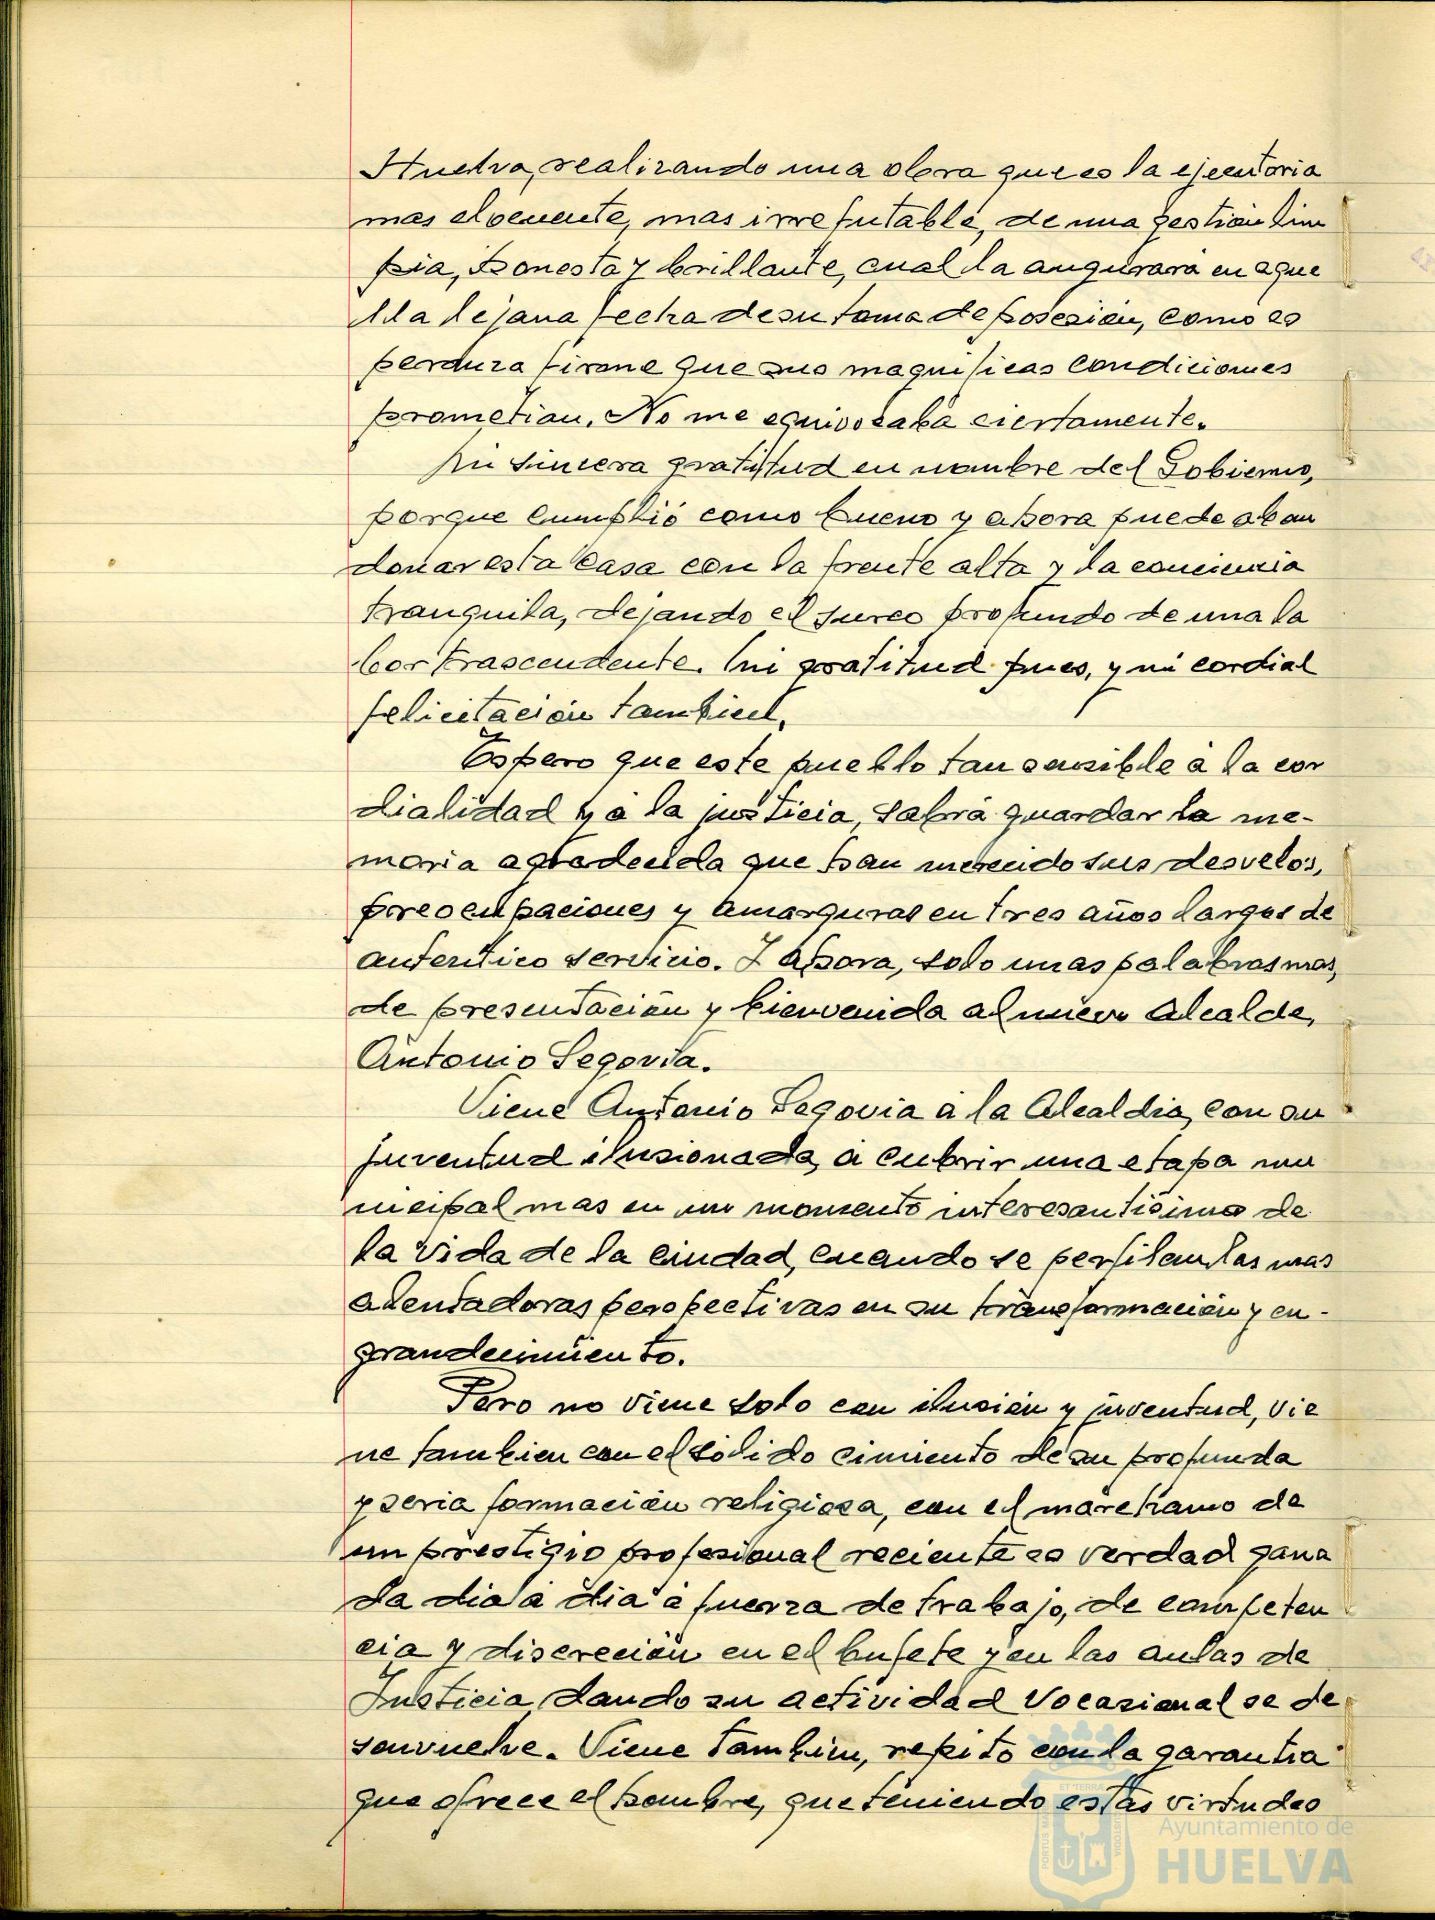 Huelva, realizando una obra que es la ejecutoria
mas elocuente, mas irrefutable, de una gestión lim
pia, honesta y brillante, cual la augurara en aque
lla lejana fecha de su toma de posesión, como es
perduza firme que sus magnificas condiciones
prometian. No me equivocaba ciertamente.
Mi sincera gratitud en nombre del Gobierno,
porque cumplió como bueno y ahora puede aban
donar esta casa con la frente alta y la conciencia
tranquila, dejando el surco profundo de una la
bor trascendente. Mi gratitud pues, y mi cordial
felicitación tambien.
Espero que este pueblo tan sensible á la cor
dialidad y á la justicia, sabrá guardar la me-
moria agradecida que han merecido sus desvelos,
preocupaciones y amarguras en tres años largos de
autentico servicio. Y ahora, solo unas palabras mas,
de presentación y bienvenida al nuevo Alcalde,
Antonio Segovia.
Viene Antonio Segovia á la Alcaldia, con su
juventud ilusionada, á cubrir una etapa mu
nicipal mas en un momento interesantisimo de
la vida de la ciudad, cuando se perfilan las mas
alentadoras perspectivas en su transformación y en-
grandecimiento.
Pero no viene solo con ilusión y juventud, vie
ne tambien con el sólido cimiento de su profunda
y seria formación religiosa, con el marchamo de
un prestigio profesional reciente es verdad gana
da dia á dia á fuerza de trabajo, de competen
cia y discreción en el bufete y en las aulas de
Justicia, dando su actividad vocasional se de
senvuelve. Viene tambien, repito con la garantia
que ofrece el hombre, que teniendo estas virtudes
Ayuntamiento de
HUELVA